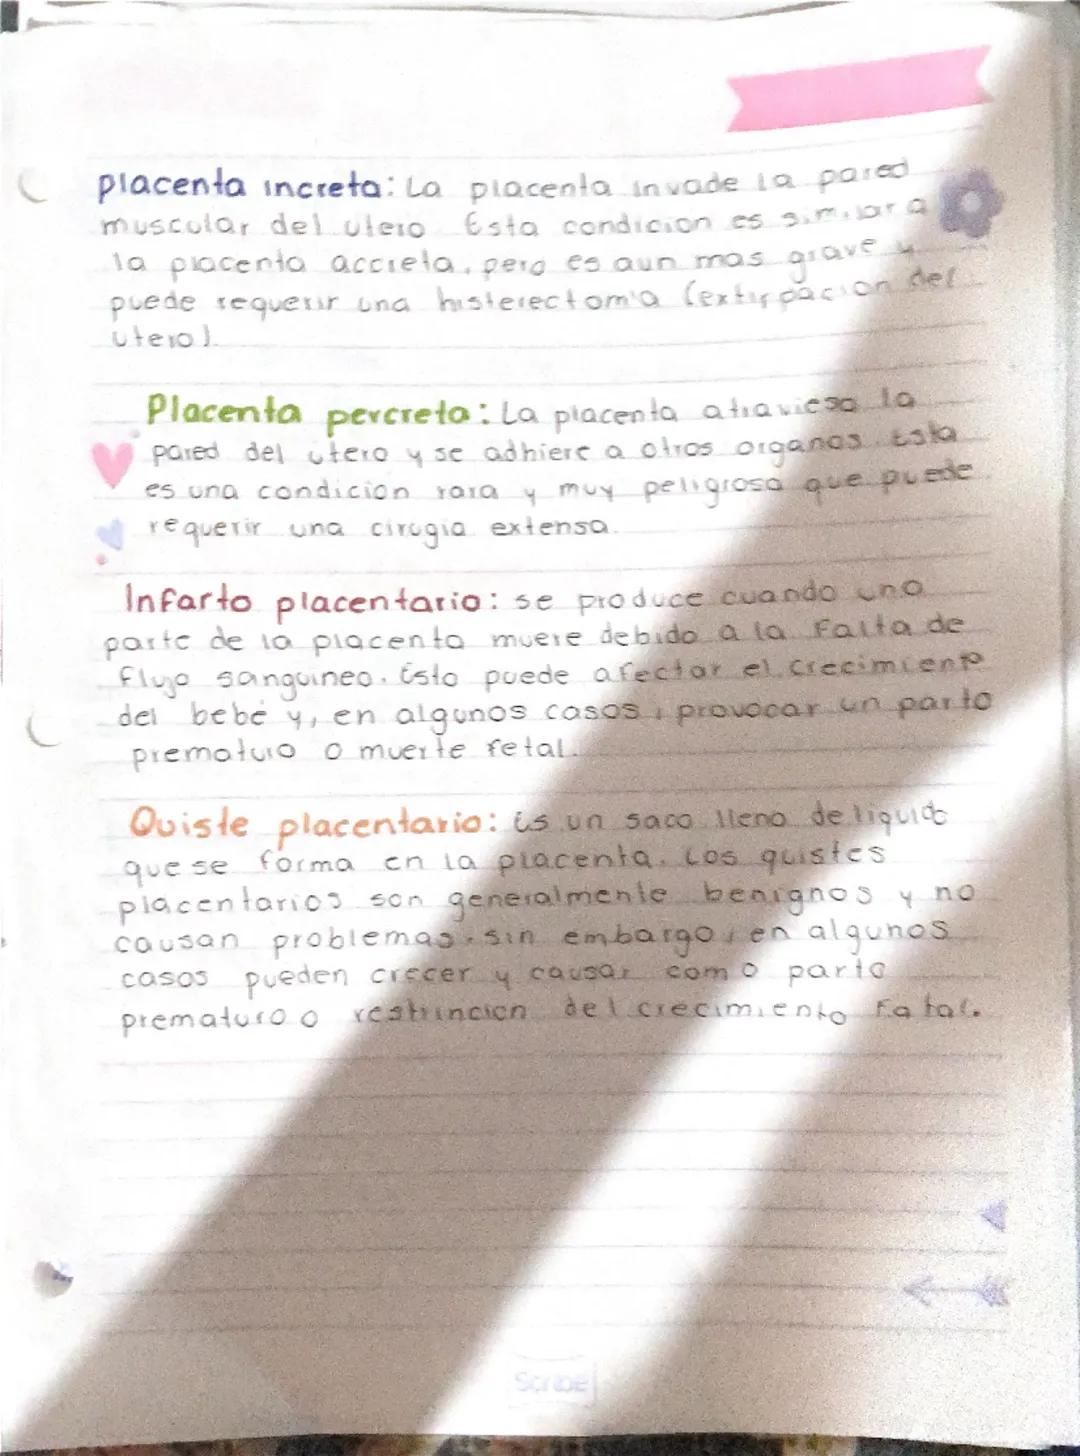 placenta increta: La placenta invade la pared
muscular del utero Esta condicion es similar a
la placenta accreta, pero es aun mas grave y
puede requerir una histerectomia (extirpacion del
utero).
Placenta percreta: La placenta atraviesa la
pared del utero y se adhiere a otros organos. Esta
es una condicion rara y muy peligrosa que puede
requerir una cirugia extensa.
Infarto placentario: se produce cuando una
parte de la placenta muere debido a la Falta de
flujo sanguineo. Esto puede afectar el crecimiento
del bebé y, en algunos casos, provocar un parto
prematuro o muerte fetal.
Quiste placentario: Es un saco lleno de liquido
que se forma en la placenta. Los quistes
placentarios son generalmente benignos y no
causan problemas. sin embargo, en algunos
casos pueden crecer y causar como parto
prematuro o restrincion del crecimiento Fatal.
Scribe